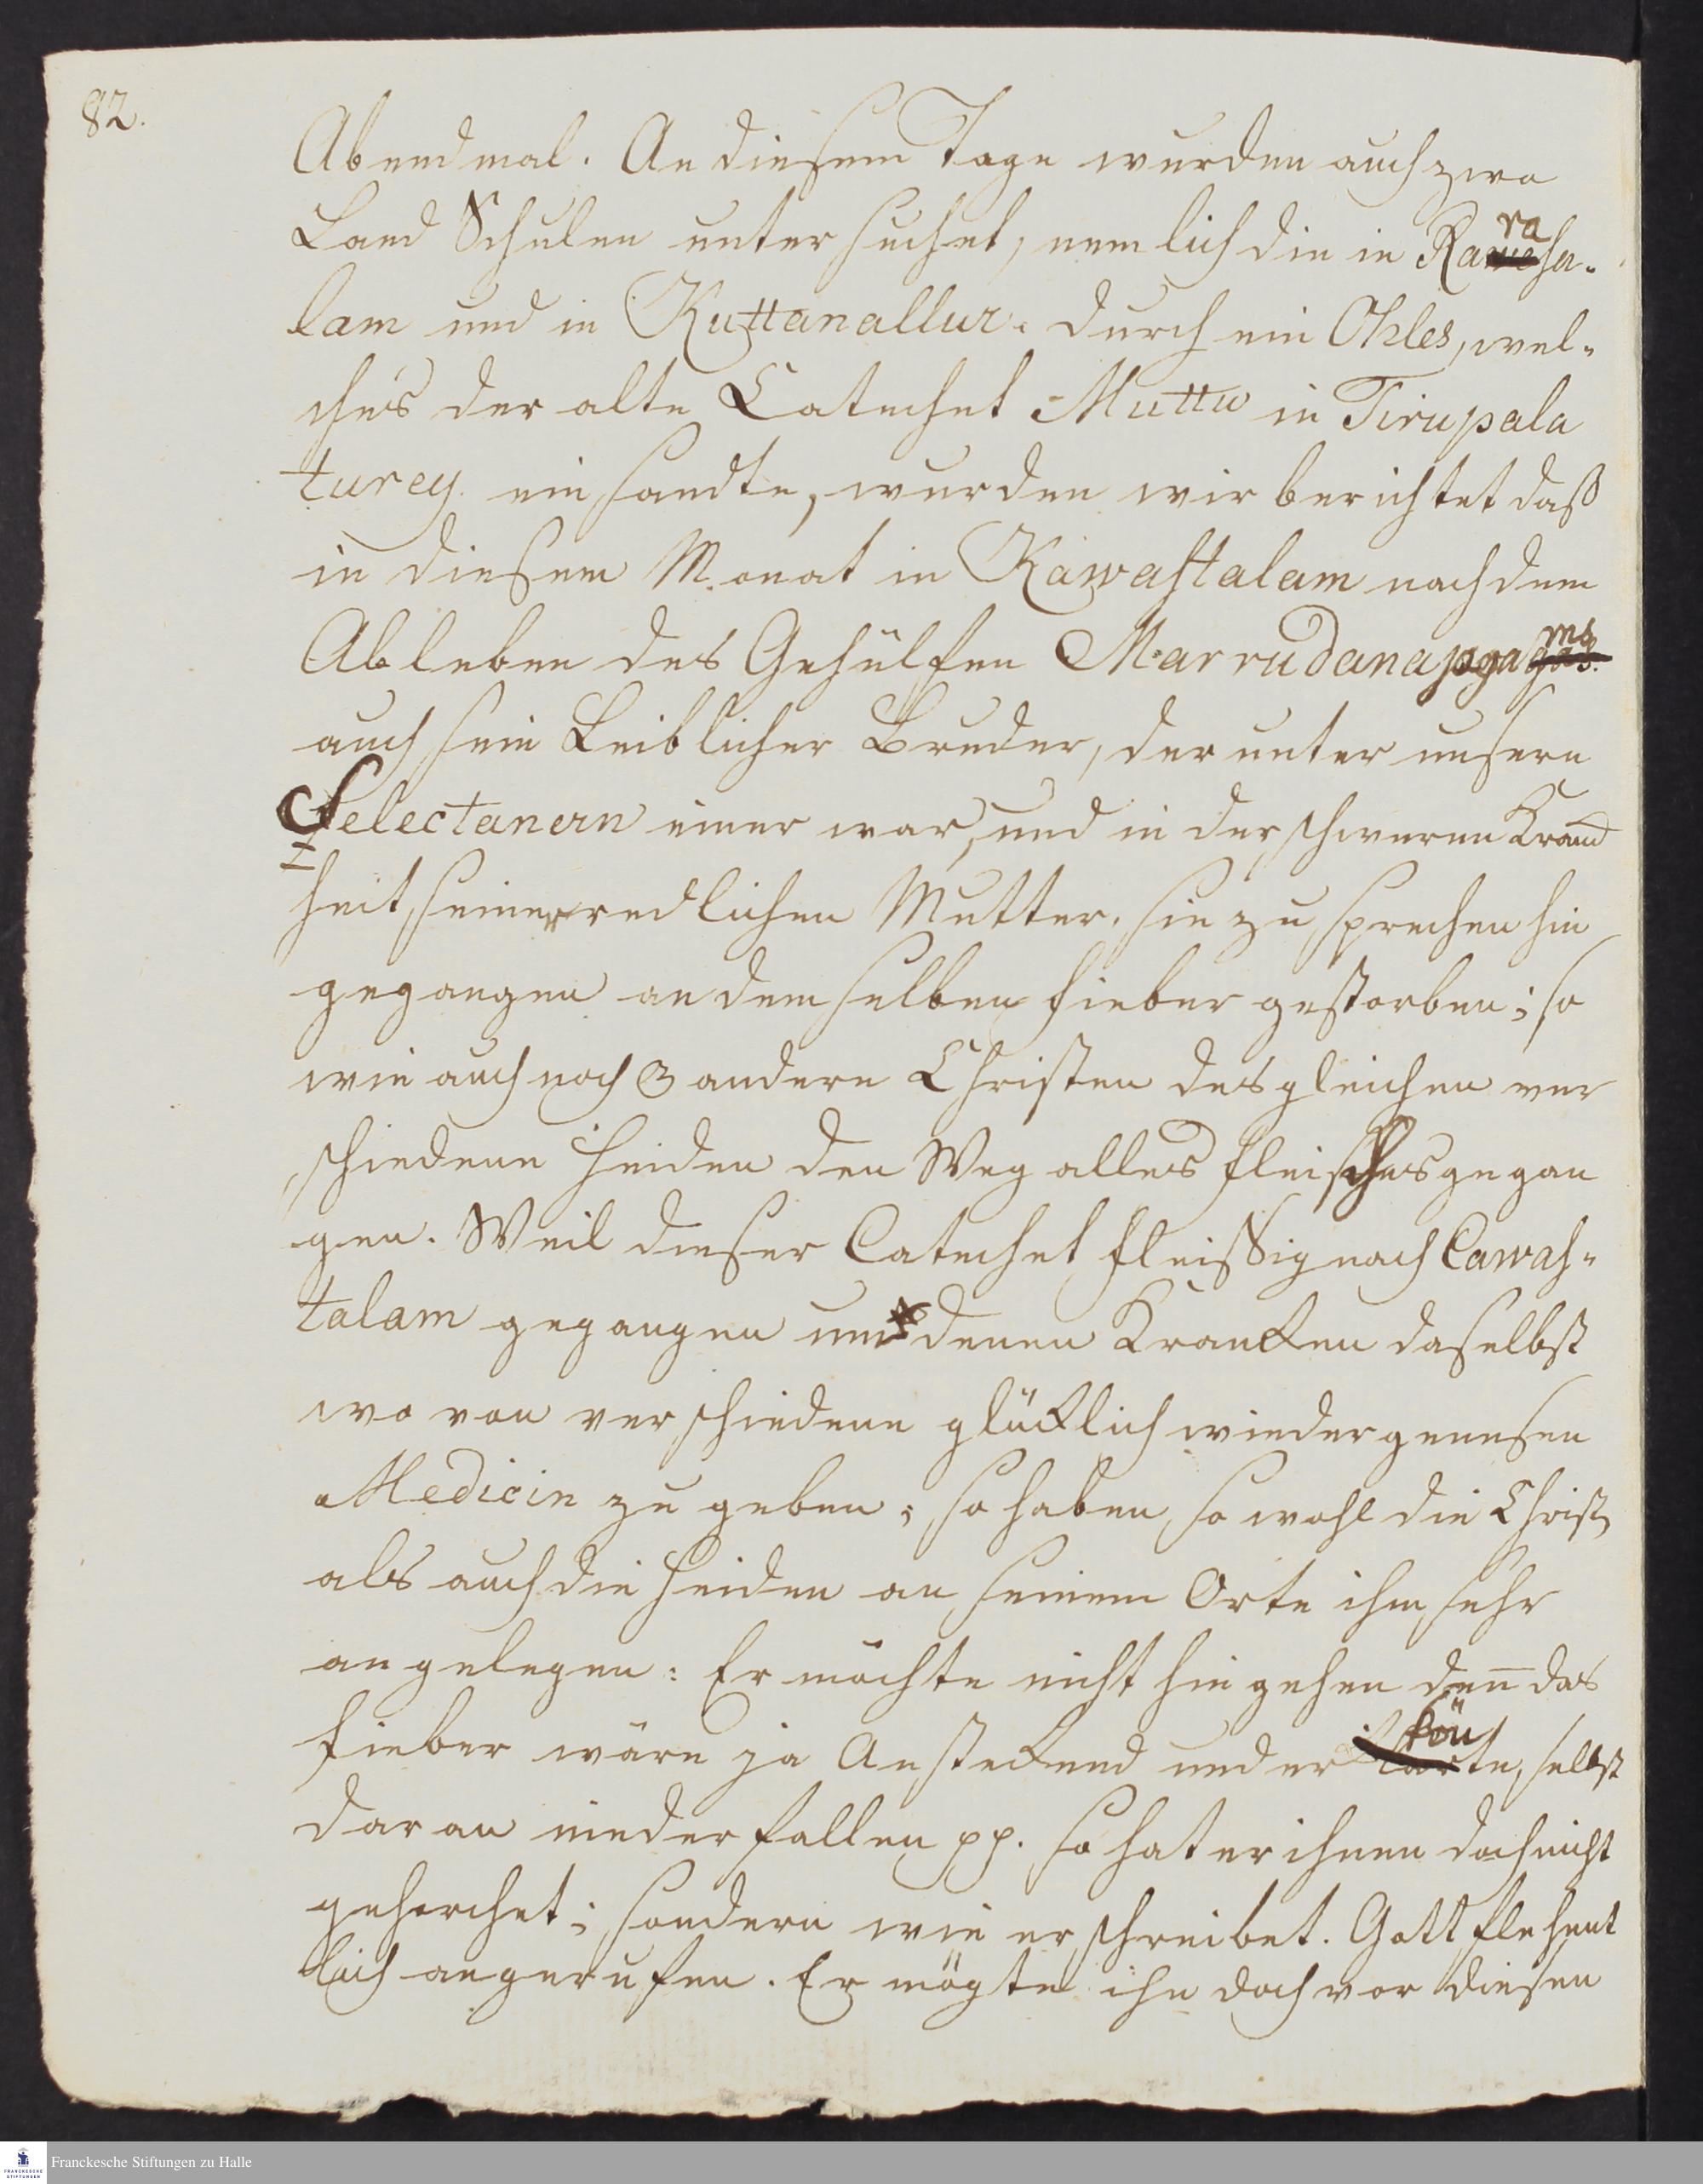 82.
Abendmal. An diesem Tage wurden auch zwo
Land Schulen untersuchet, nemlich die in Rarasa-
lam und in Kuttanallur. durch ein Ohles, wel-
ches der alte Catechet Muttu in Tirupala
turey. ein sandte, wurden wir berichtet daß
in diesem Monat in Kawastalam nach dem
Ableben des Gehülfen Marrudanajagams
auch sein Leiblicher Bruder, der unter unsern
Selectanern einer war, und in der schweren Kranck
heit, seiner redlichen Mutter, sie zu sprechen hin
gegangen an dem selben Fieber gestorben; so
wie auch noch 3 andere Christen desgleichen ver
schiedene Heiden den Weg alles Fleisches gegan
gen. Weil dieser Catechet fleissig nach Cawas-
talam gegangen um denen Kranken daselbst
wo von verschiedene glücklich wieder genesen
Medicin zu geben; so haben so wohl die Christ
als auch die Heiden an seinem Orte ihm sehr
angelegen: Er möchte nicht hingehen den̅ das
Fieber wäre ja Ansteckend und er könte, selbst
daran nieder fallen pp. so hat er ihnen doch nicht
gehorchet; sondern wie er schreibet. Gott flehent
lich angerufen. Er mögte ihn doch vor diesen
Franckesche Stiftungen zu Halle